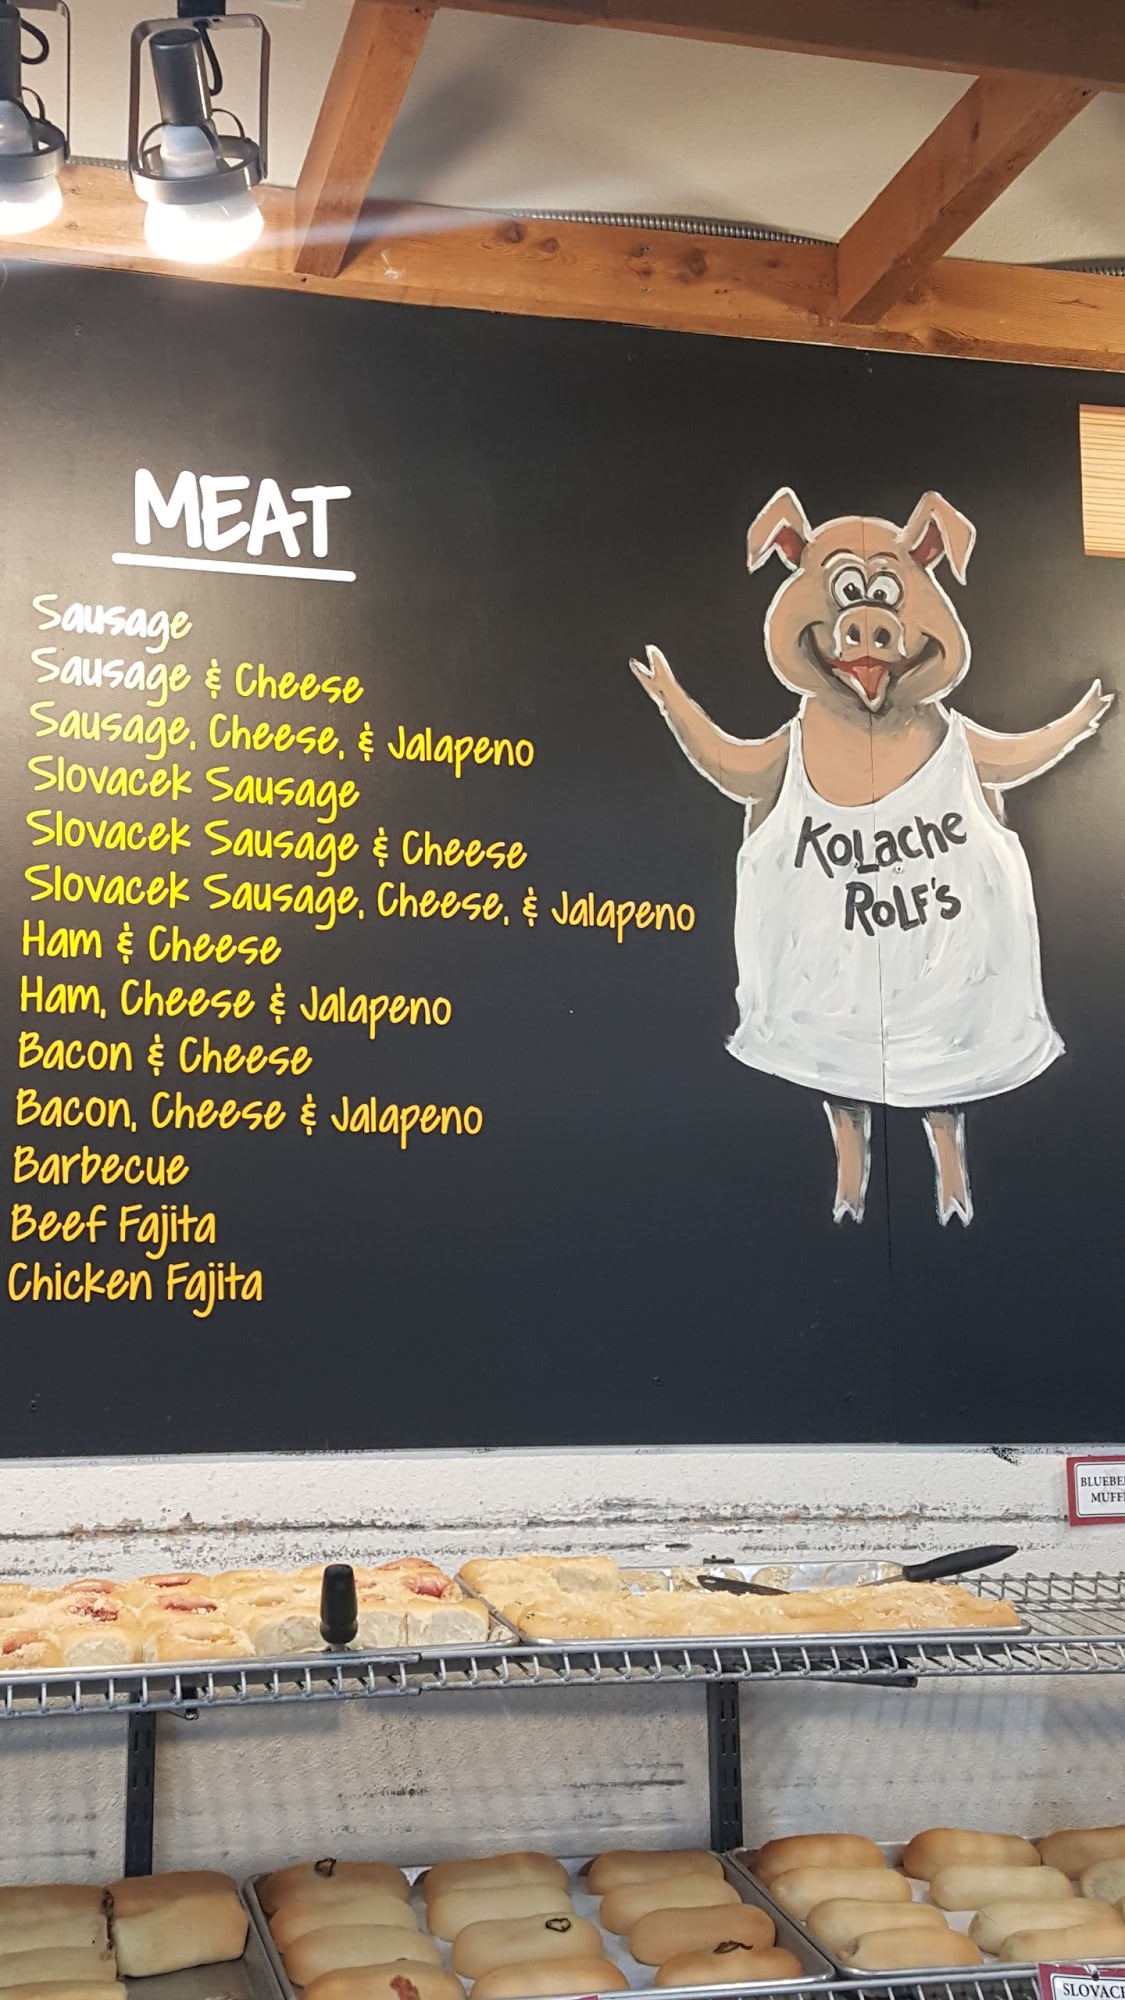 MEAT
Sausage
Sausage & Cheese
Sausage, Cheese, & Jalapeno
Slovacek Sausage
Slovacek Sausage & Cheese
Slovacek Sausage, Cheese, & Jalapeno
Ham & Cheese
Ham, Cheese & Jalapeno
Bacon & Cheese
Bacon, Cheese & Jalapeno
Barbecue
Beef Fajita
Chicken Fajita
Kolache
Rolf's